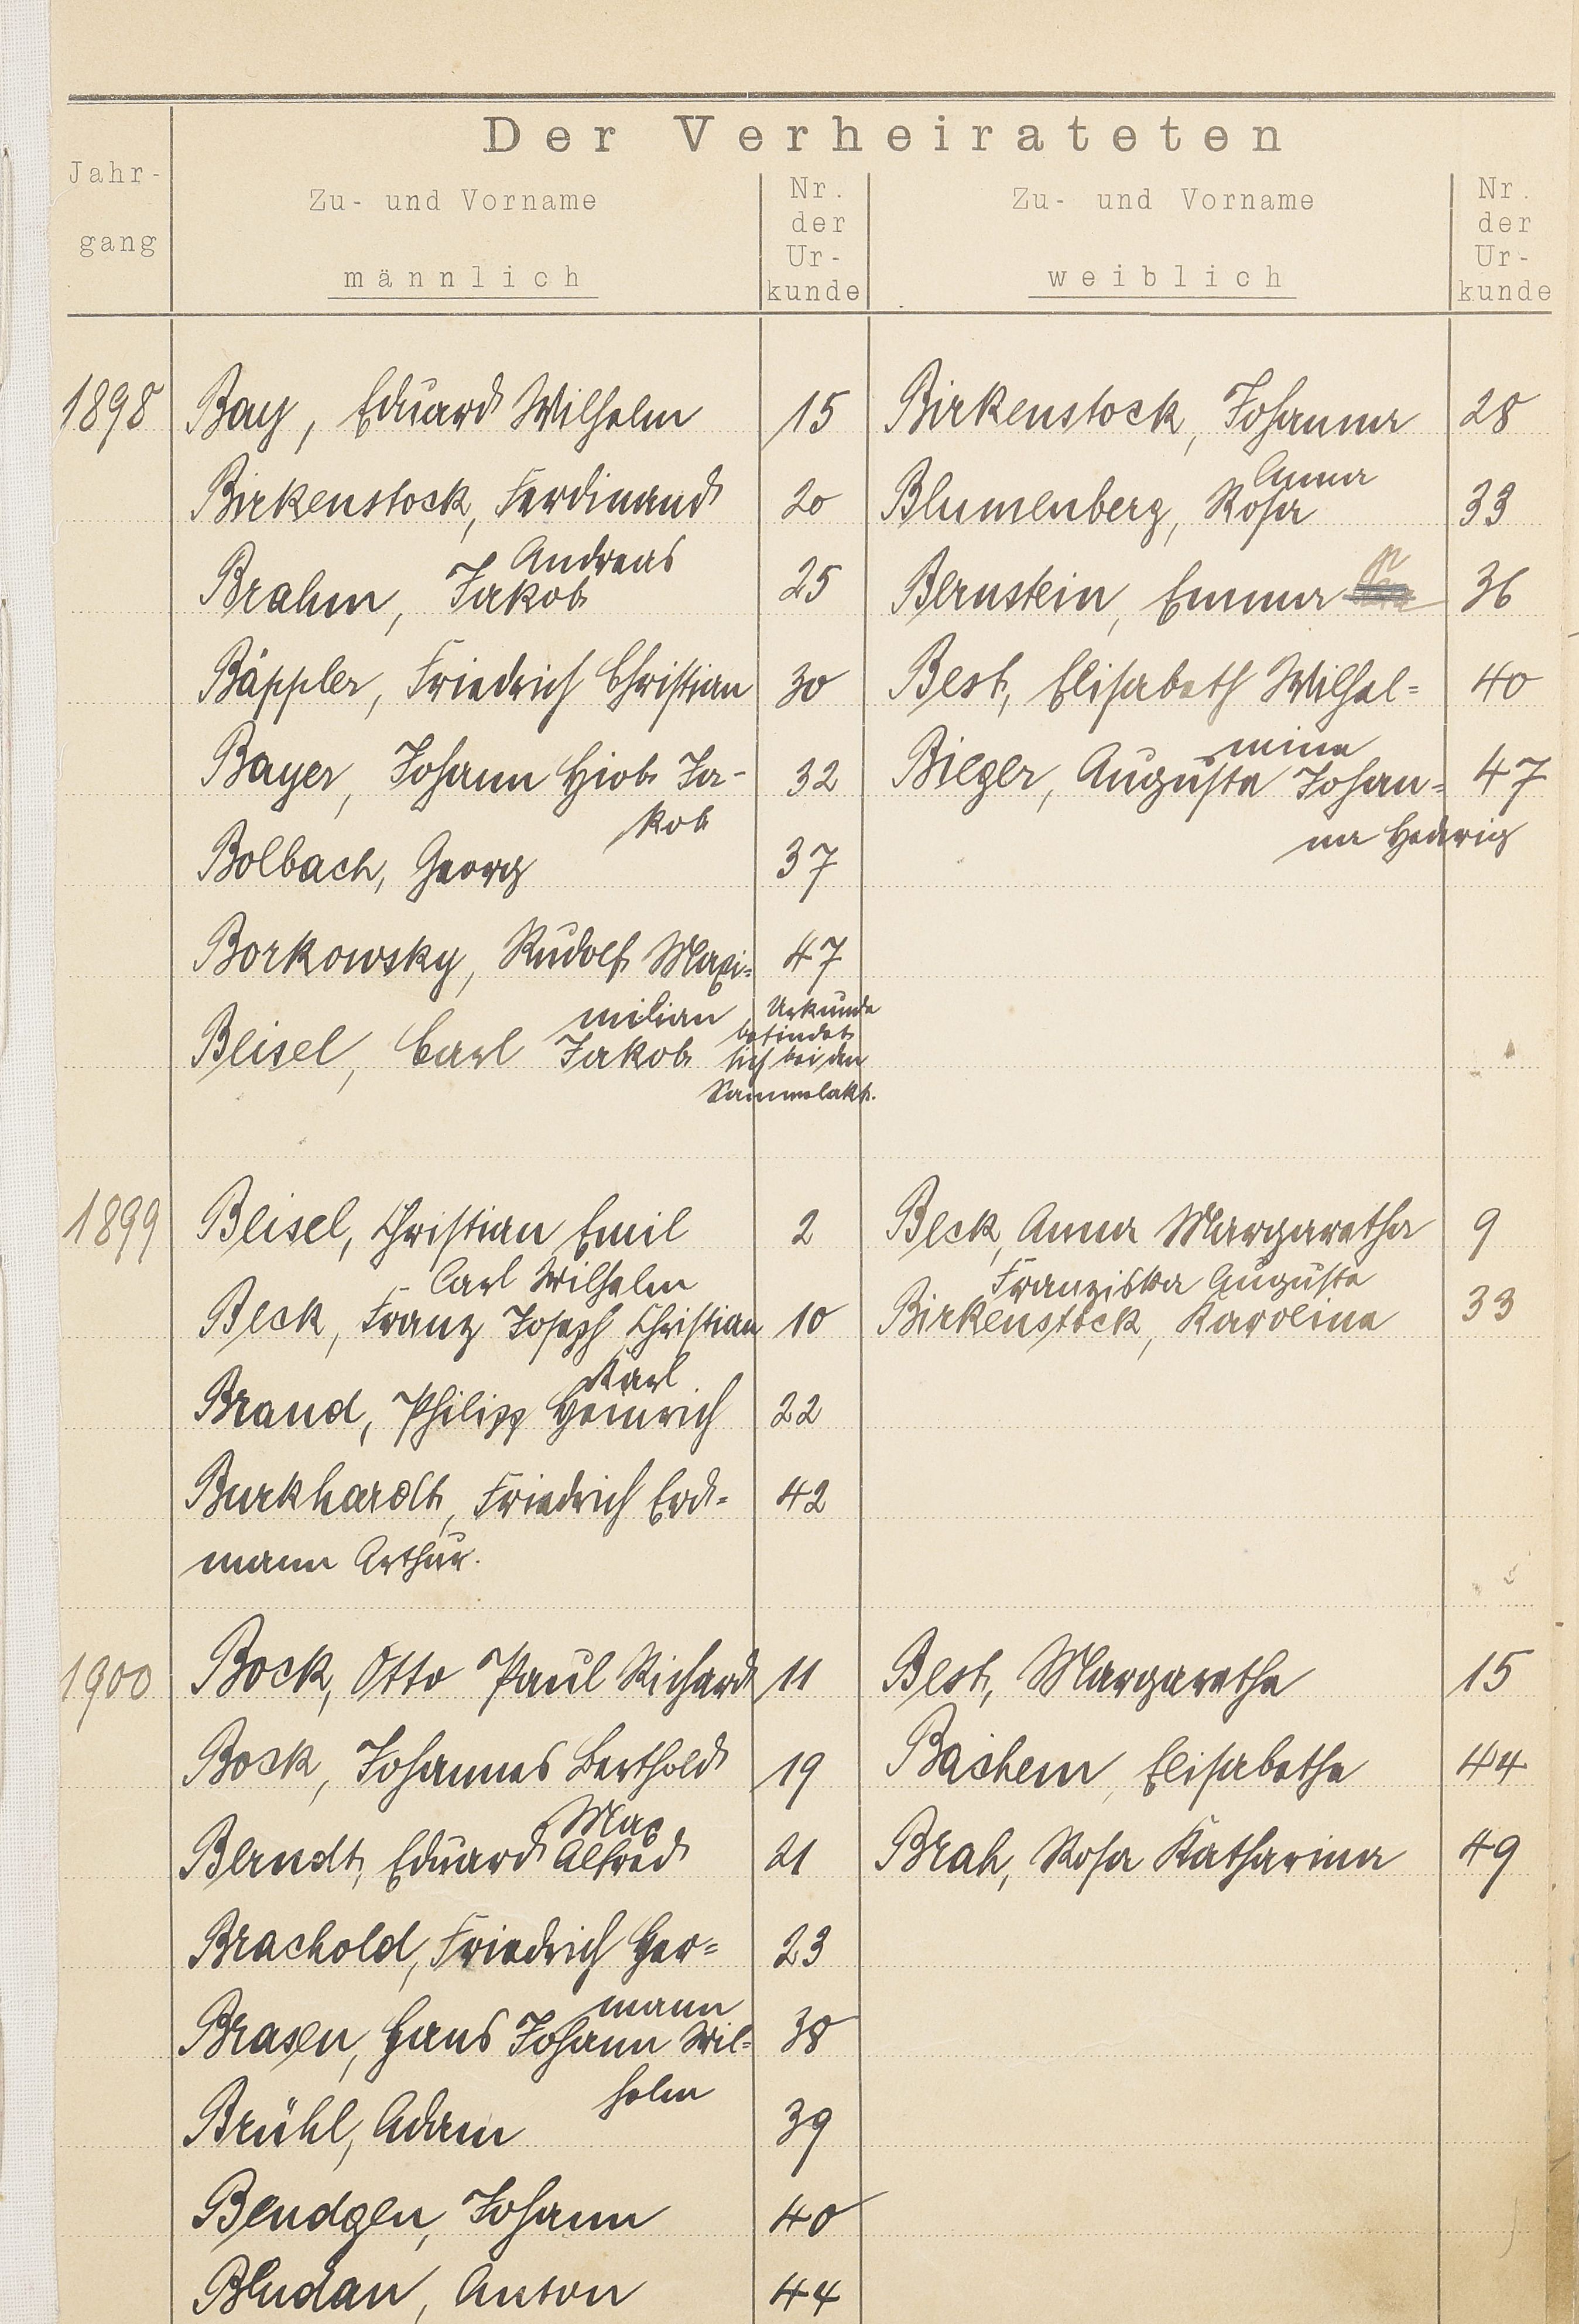 Der Verheirateten
Jahr-
gang
Zu- und Vorname
männlich
Nr.
der
Ur-
kunde
Zu- und Vorname
weiblich
Nr.
der
Ur-
kunde
1898 Bay, Eduard Wilhelm 15 Birkenstock, Johanna 28
Anna
Birkenstock, Ferdinand 20 Blumenberg, Rosa 33
Andreas
Brahm, Jakob 25 Bernstein, Emma 36
Bäppler, Friedrich Christian 30 Best, Elisabeth Wilhel= 40
mine
Bayer, Johann Hiob Ja- 32 Bieger, Auguste Johan= 47
kob na Hedwig
Bolbach, Georg 37
Borkowsky, Rudolf Maxi= 47
milian Urkunde
befindet
Beisel, Carl Jakob sich bei den
Sammelakt.
1899 Beisel, Christian Emil 2 Beck, Anna Margaretha 9
Carl Wilhelm Franziska Auguste
Beck, Franz Joseph Christian 10 Birkenstock, Karolina 33
Karl
Brand, Philipp Heinrich 22
Burkhardt, Friedrich Erd= 42
mann Arthur.
1900 Bock, Otto Paul Richard 11 Best, Margarethe 15
Bock, Johannes Berthold 19 Bachem, Elisabethe 44
Max
Berndt, Eduard Alfred 21 Brah, Rosa Katharina 49
Brachold, Friedrich Her= 23
mann
Brasen, Hans Johann Wil= 38
helm
Brühl, Adam 39
Bendgen, Johann 40
Bludan, Anton 44